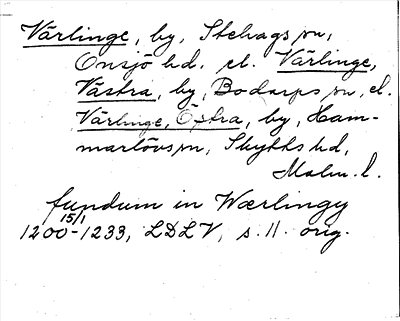 Värlinge, by, Stehags sn,
Onsjö hd, el. Värlinge,
Västra, by, Bodarps sn, el.
Värlinge, Östra, by, Ham-
marlövs sn, Skytts hd,
Malm. l.
fundum in Wærlingy
1200 15/1 - 1233, LDLV, s. 11. orig.